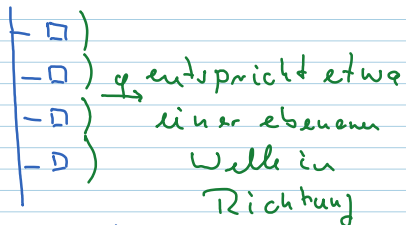 φ entspricht etwa
einer ebenen
Welle in
Richtung